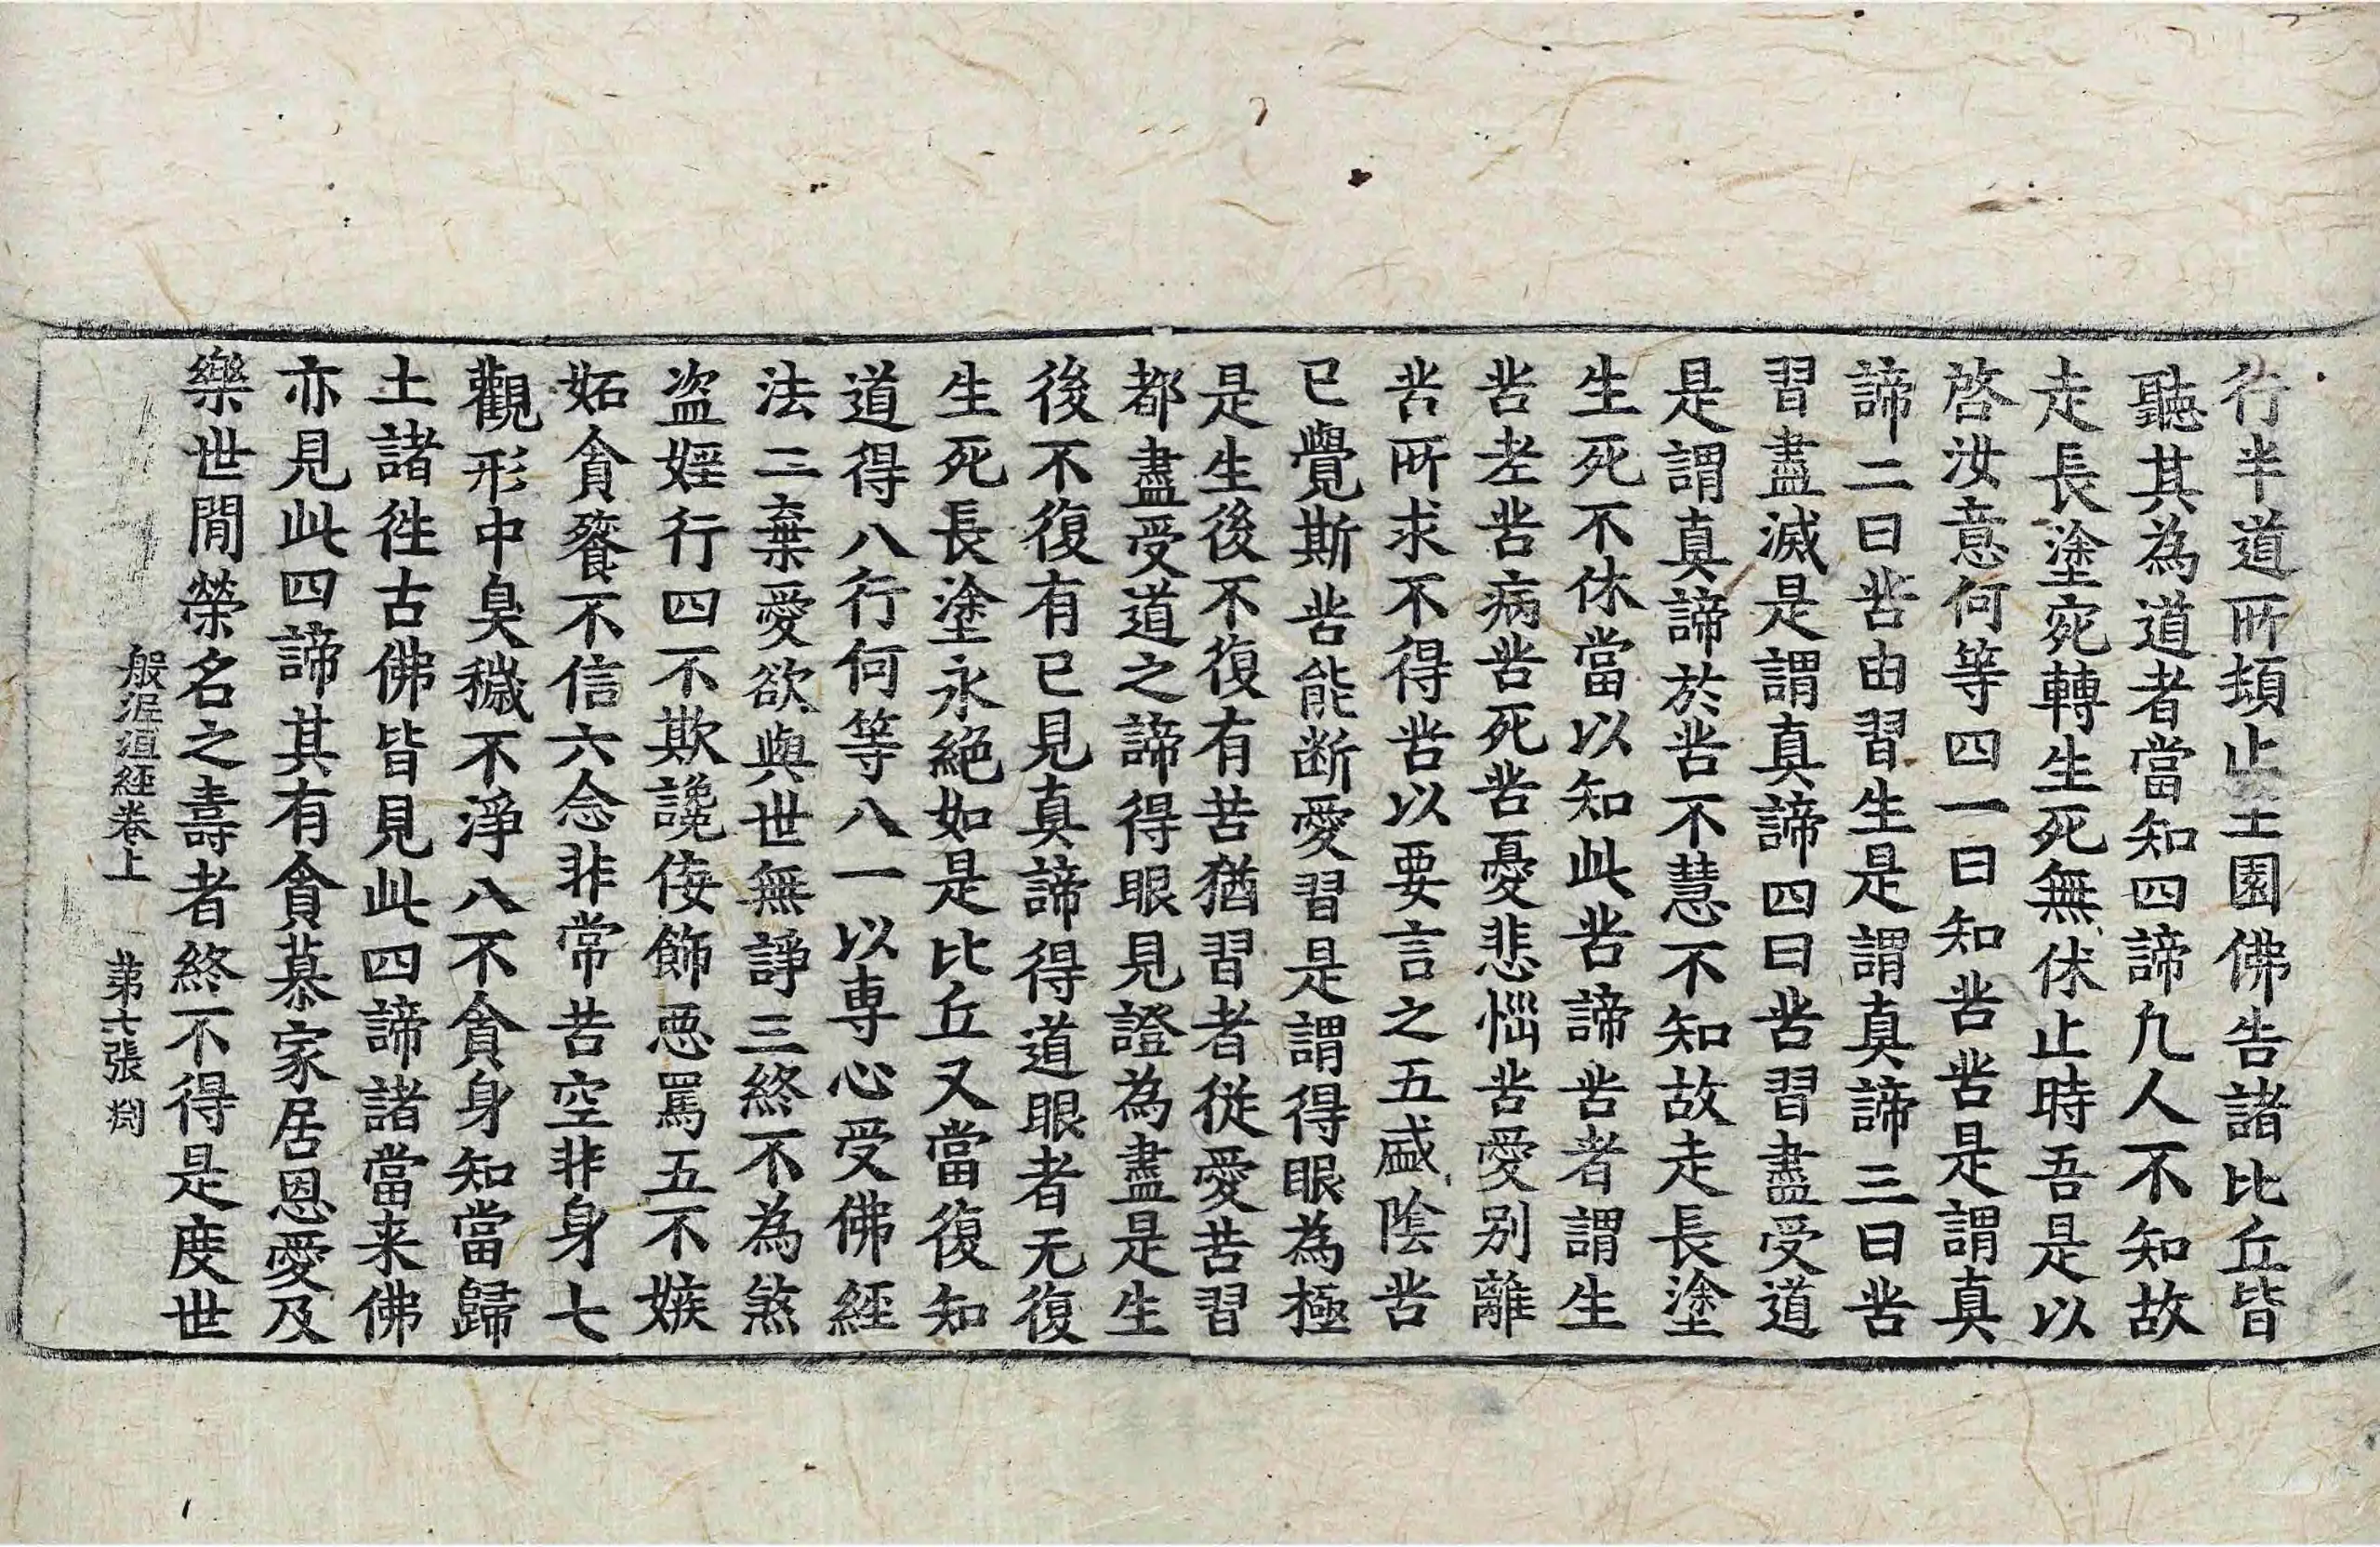 行半道所頓止王園佛告諸比丘皆
聽其為道者當知四諦凡人不知故
走長塗宛轉生死無休止時吾是以
啓汝意何等四一曰知苦苦是謂真
諦二曰苦由習生是謂真諦三曰苦
習盡滅是謂真諦四曰苦習盡受道
是謂真諦於苦不慧不知故走長塗
生死不休當以知此苦諦苦者謂生
苦老苦病苦死苦憂悲惱苦愛別離
苦所求不得苦以要言之五盛陰苦
已覺斯苦能断愛習是謂得眼為極
是生後不復有苦猶習者從愛苦習
都盡受道之諦得眼見證為盡是生
後不復有已見真諦得道眼者无復
生死長塗永絕如是比丘又當復知
道得八行何等八一以專心受佛經
法二棄愛欲與世無諍三終不為煞
盜婬行四不欺讒侫飾惡罵五不嫉
妬貪餮不信六念非常苦空非身七
觀形中臭穢不淨八不貪身知當歸
土諸徃古佛皆見此四諦諸當来佛
亦見此四諦其有貪慕家居恩愛及
樂世間榮名之壽者終不得是度世
般泥洹經卷上 苐六張